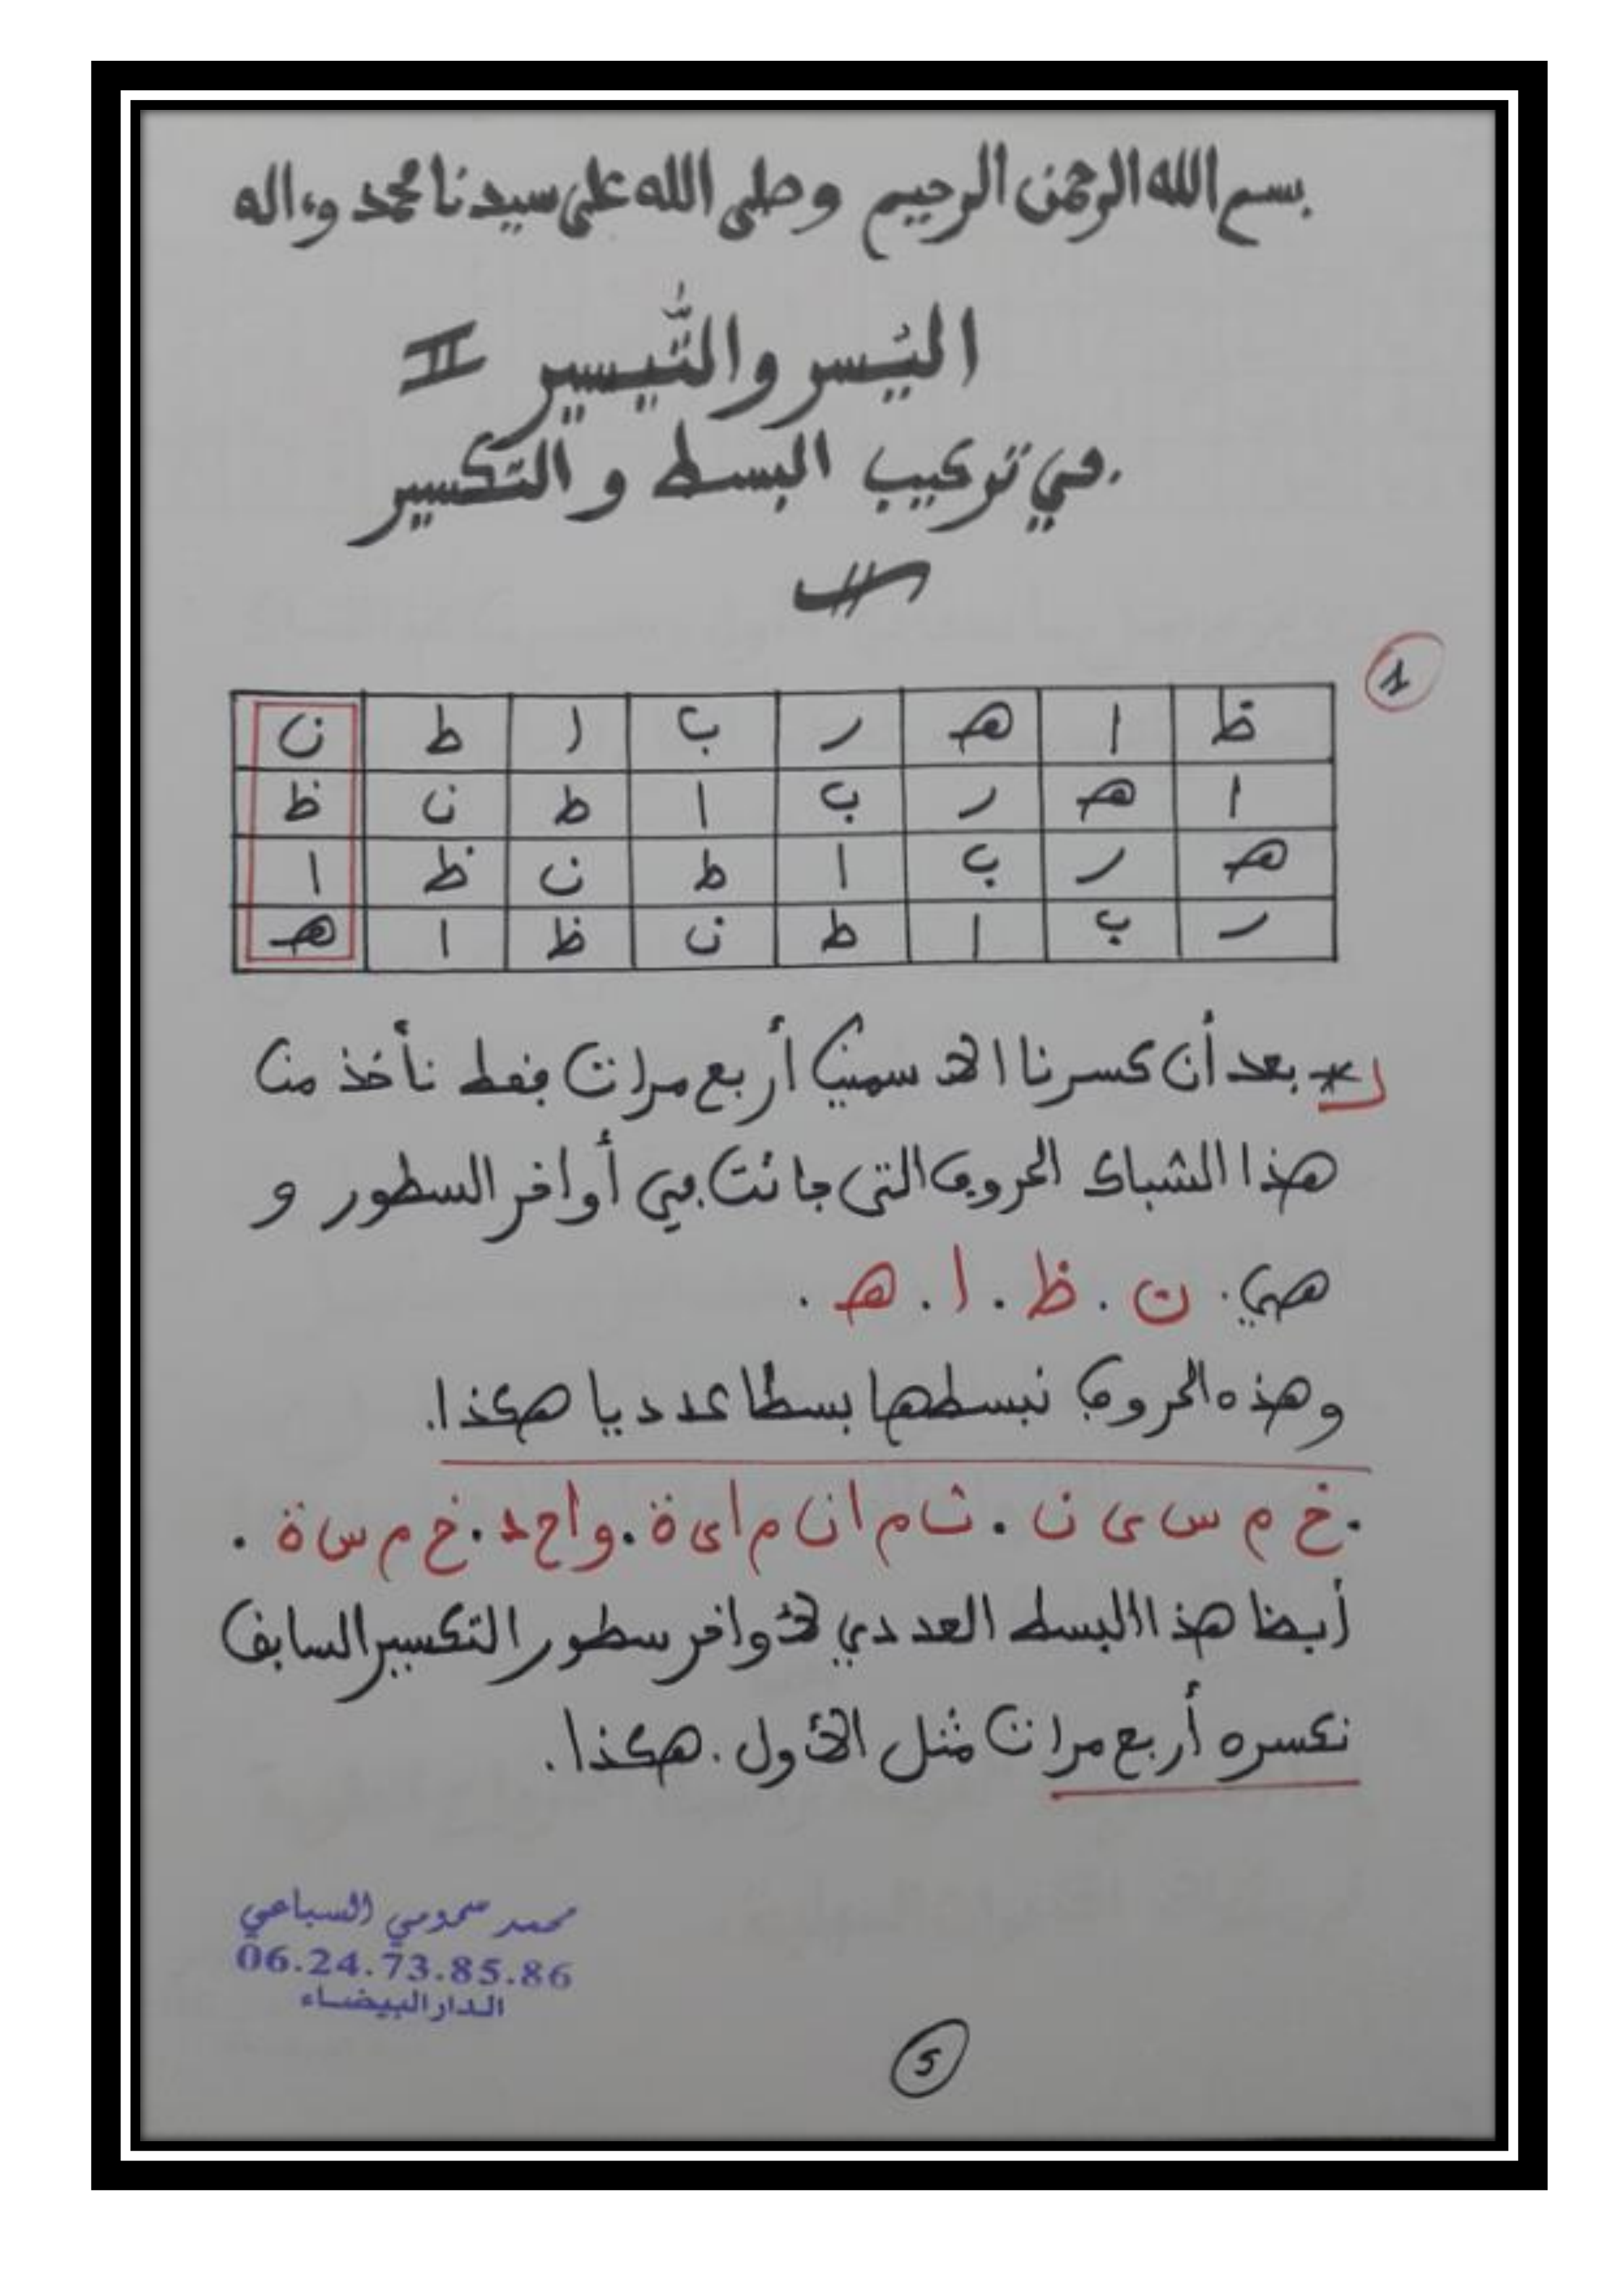 بسم الله الرحمن الرحيم وصلى الله على سيدنا محمد وءاله
اليُسر والتَّيسير II
في تركيب البسط والتكسير
1
ظ ا هـ ر ب ا ط ن
ا هـ ر ب ا ط ن ظ
هـ ر ب ا ط ن ظ ا
ر ب ا ط ن ظ ا هـ
* بعد أن كسرنا الاسمين أربع مرات فقط نأخذ من
هذا الشباك الحروف التي جائت في أواخر السطور و
هي . ن . ظ . ا . هـ .
وهذه الحروف نبسطها بسطا عدديا هكذا .
. خ م س ى ن . ث م ا ن م ا ى ة . و ا ح د . خ م س ة .
أيضا هذا البسط العددي لأواخر سطور التكسير السابق
نكسره أربع مرات مثل الأول . هكذا .
محمد سمومي السباعي
06.24.73.85.86
الدار البيضاء
5